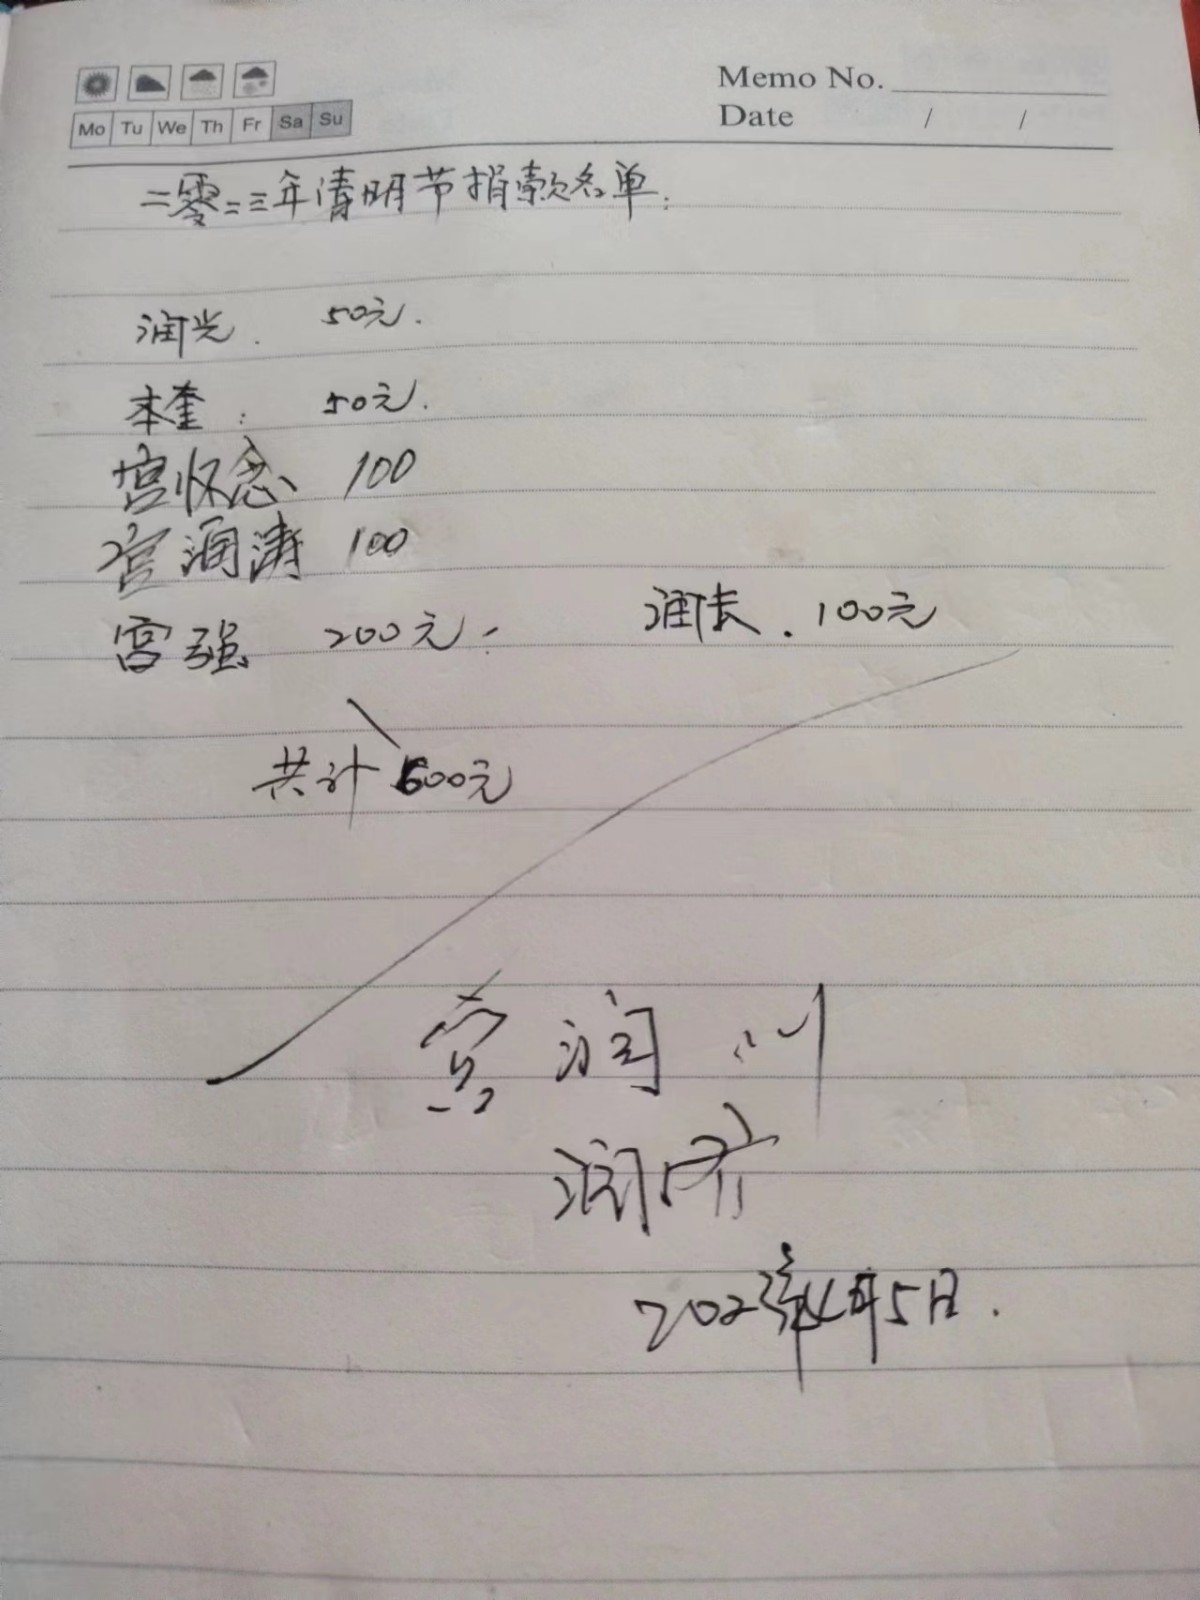 Memo No.
Mo Tu We Th Fr Sa Su
Date / /
二零二三年清明节捐款名单:
润光. 50元.
本奎: 50元.
宫怀念 100
宫润涛 100
宫强 200元.
润长. 100元
共计600元
宫润川
润济
2023年4月5日.